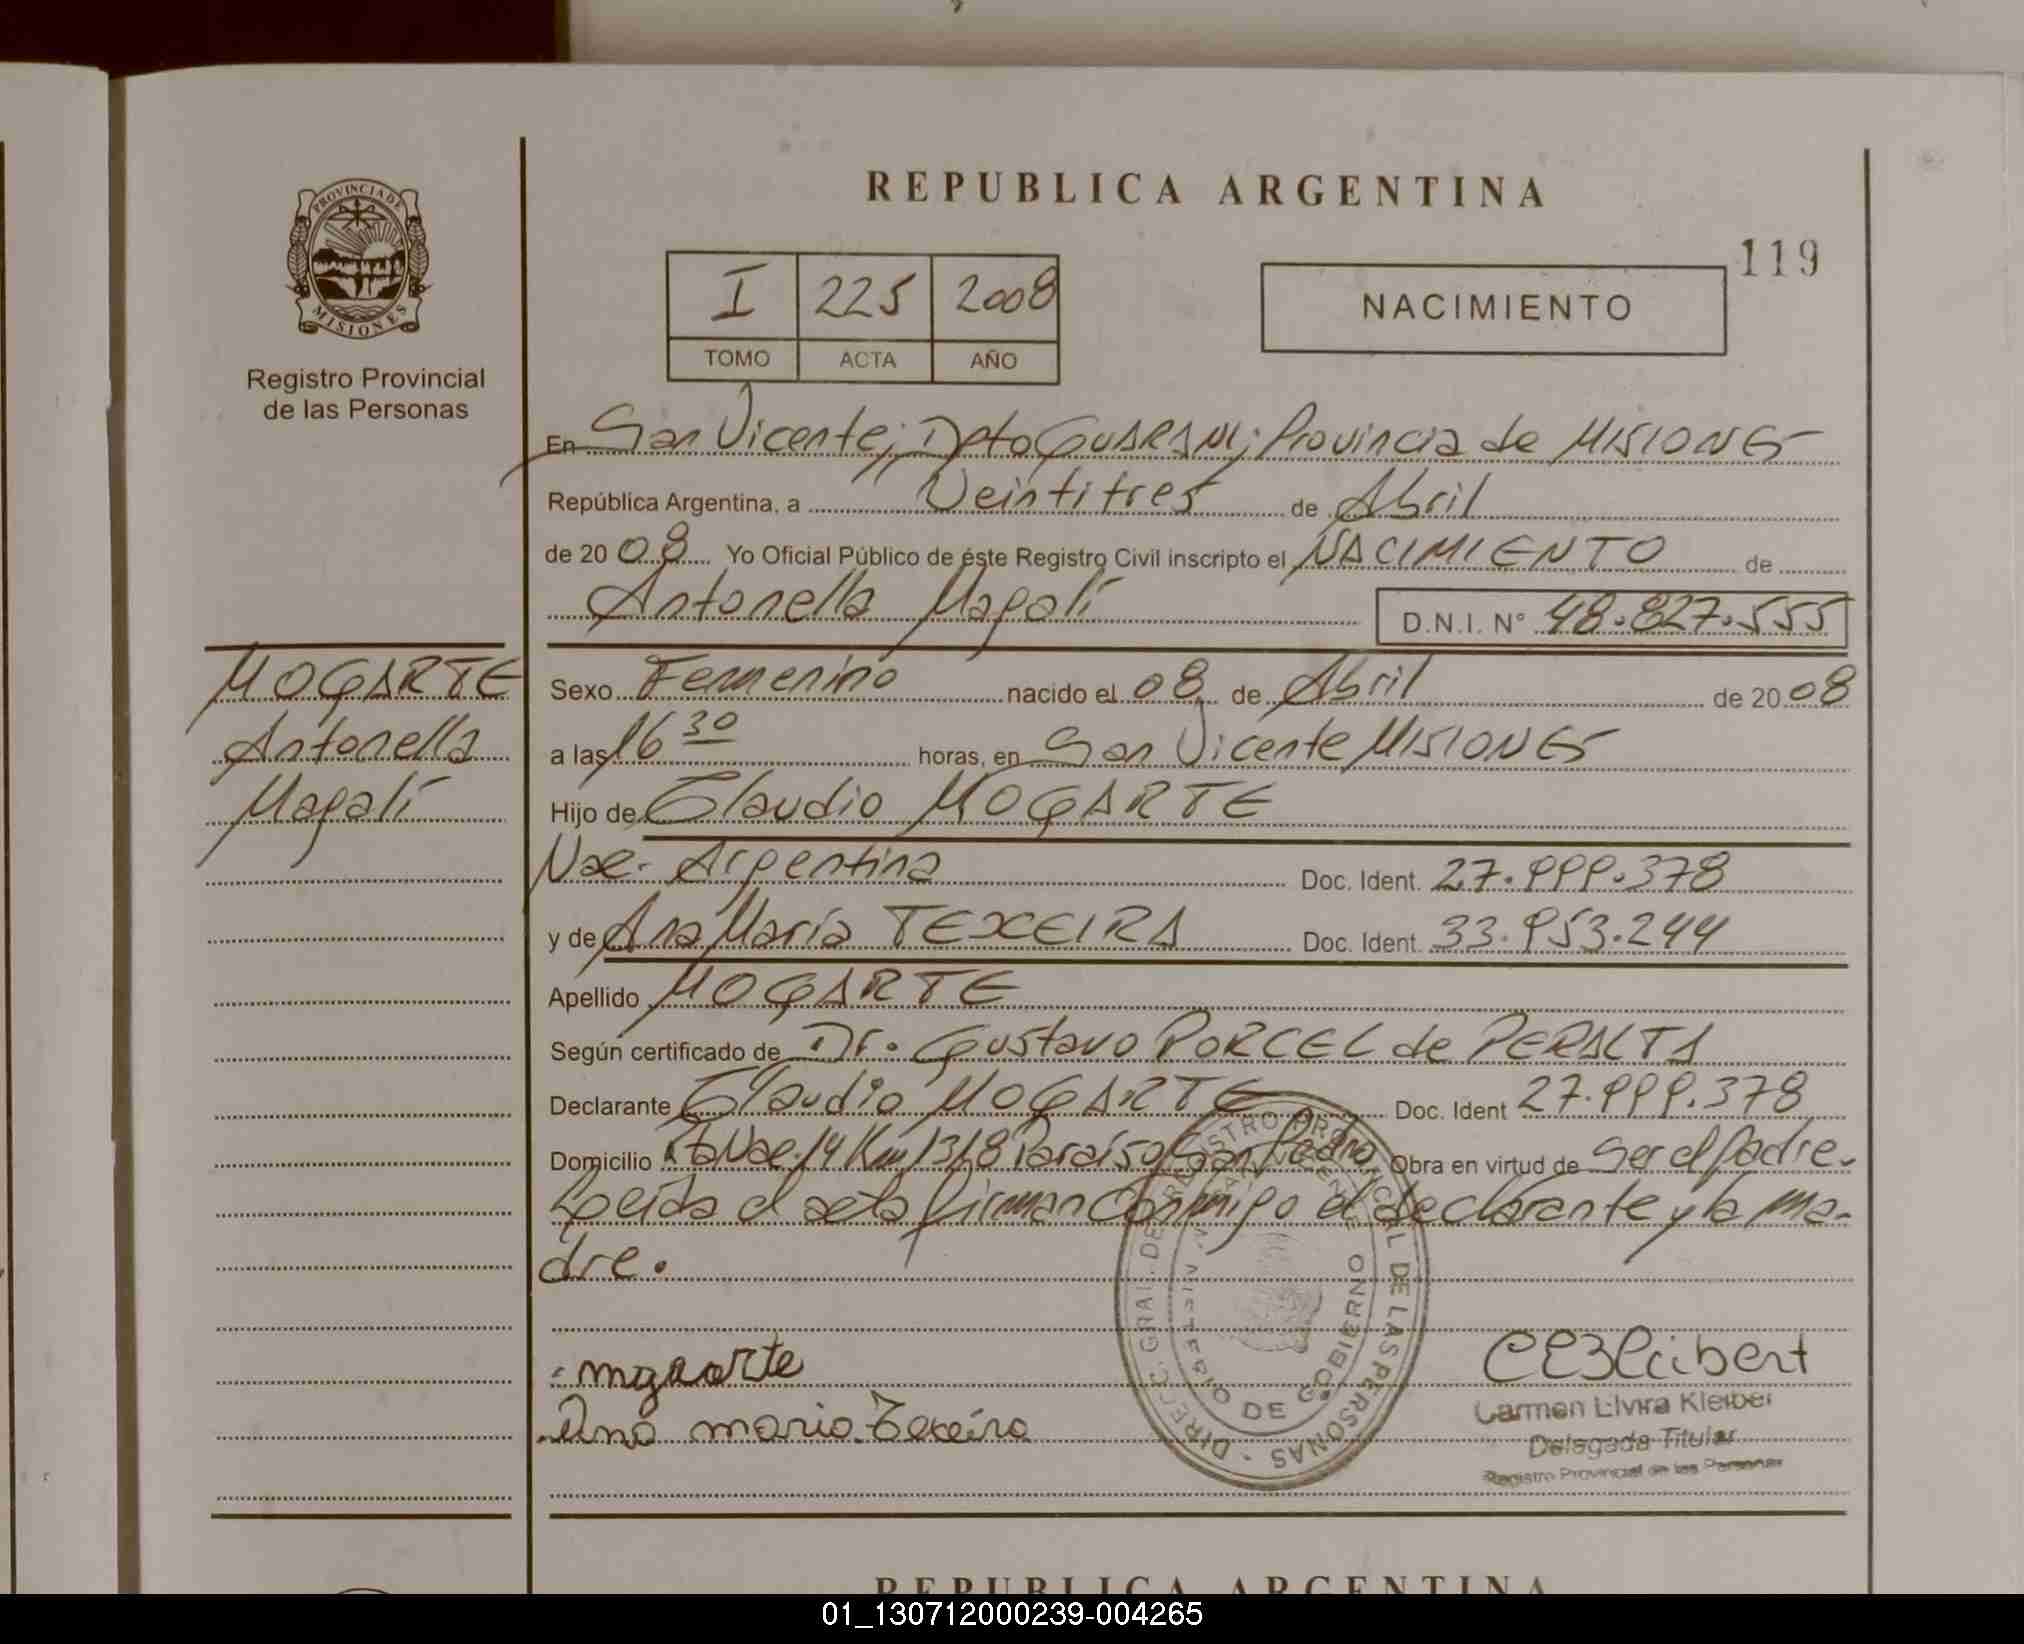 PROVINCIA DE
MISIONES
Registro Provincial
de las Personas
REPUBLICA ARGENTINA
119
I 225 2008
TOMO ACTA AÑO
NACIMIENTO
En San Vicente; Dpto GUARANI; Provincia de MISIONES
República Argentina, a Veintitres de Abril
de 2008 Yo Oficial Público de éste Registro Civil inscripto el NACIMIENTO de
Antonella Magalí D.N.I. N° 48.827.555
MOGARTE
Antonella
Magalí
Sexo Femenino nacido el 08 de Abril de 2008
a las 16 30 horas, en San Vicente MISIONES
Hijo de Claudio MOGARTE
Nac. Argentina Doc. Ident. 27.999.378
y de Ana María TEXEIRA Doc. Ident. 33.953.244
Apellido MOGARTE
Según certificado de Dr. Gustavo PORCEL de PERALTA
Declarante Claudio MOGARTE Doc. Ident 27.999.378
Domicilio Rta Nac. 14 Km 1318 Paraíso San Pedro Obra en virtud de ser el padre.
Leída el acta firman conmigo el declarante y la ma-
dre.
DIREC. GRAL. DE REGISTRO PROVINCIAL DE LAS PERSONAS
SAN VICENTE
MINISTERIO DE GOBIERNO
Ana maria Texeira
Carmen Elvira Kleiber
Delegada Titular
Registro Provincial de las Personas
REPUBLICA ARGENTINA
01_130712000239-004265